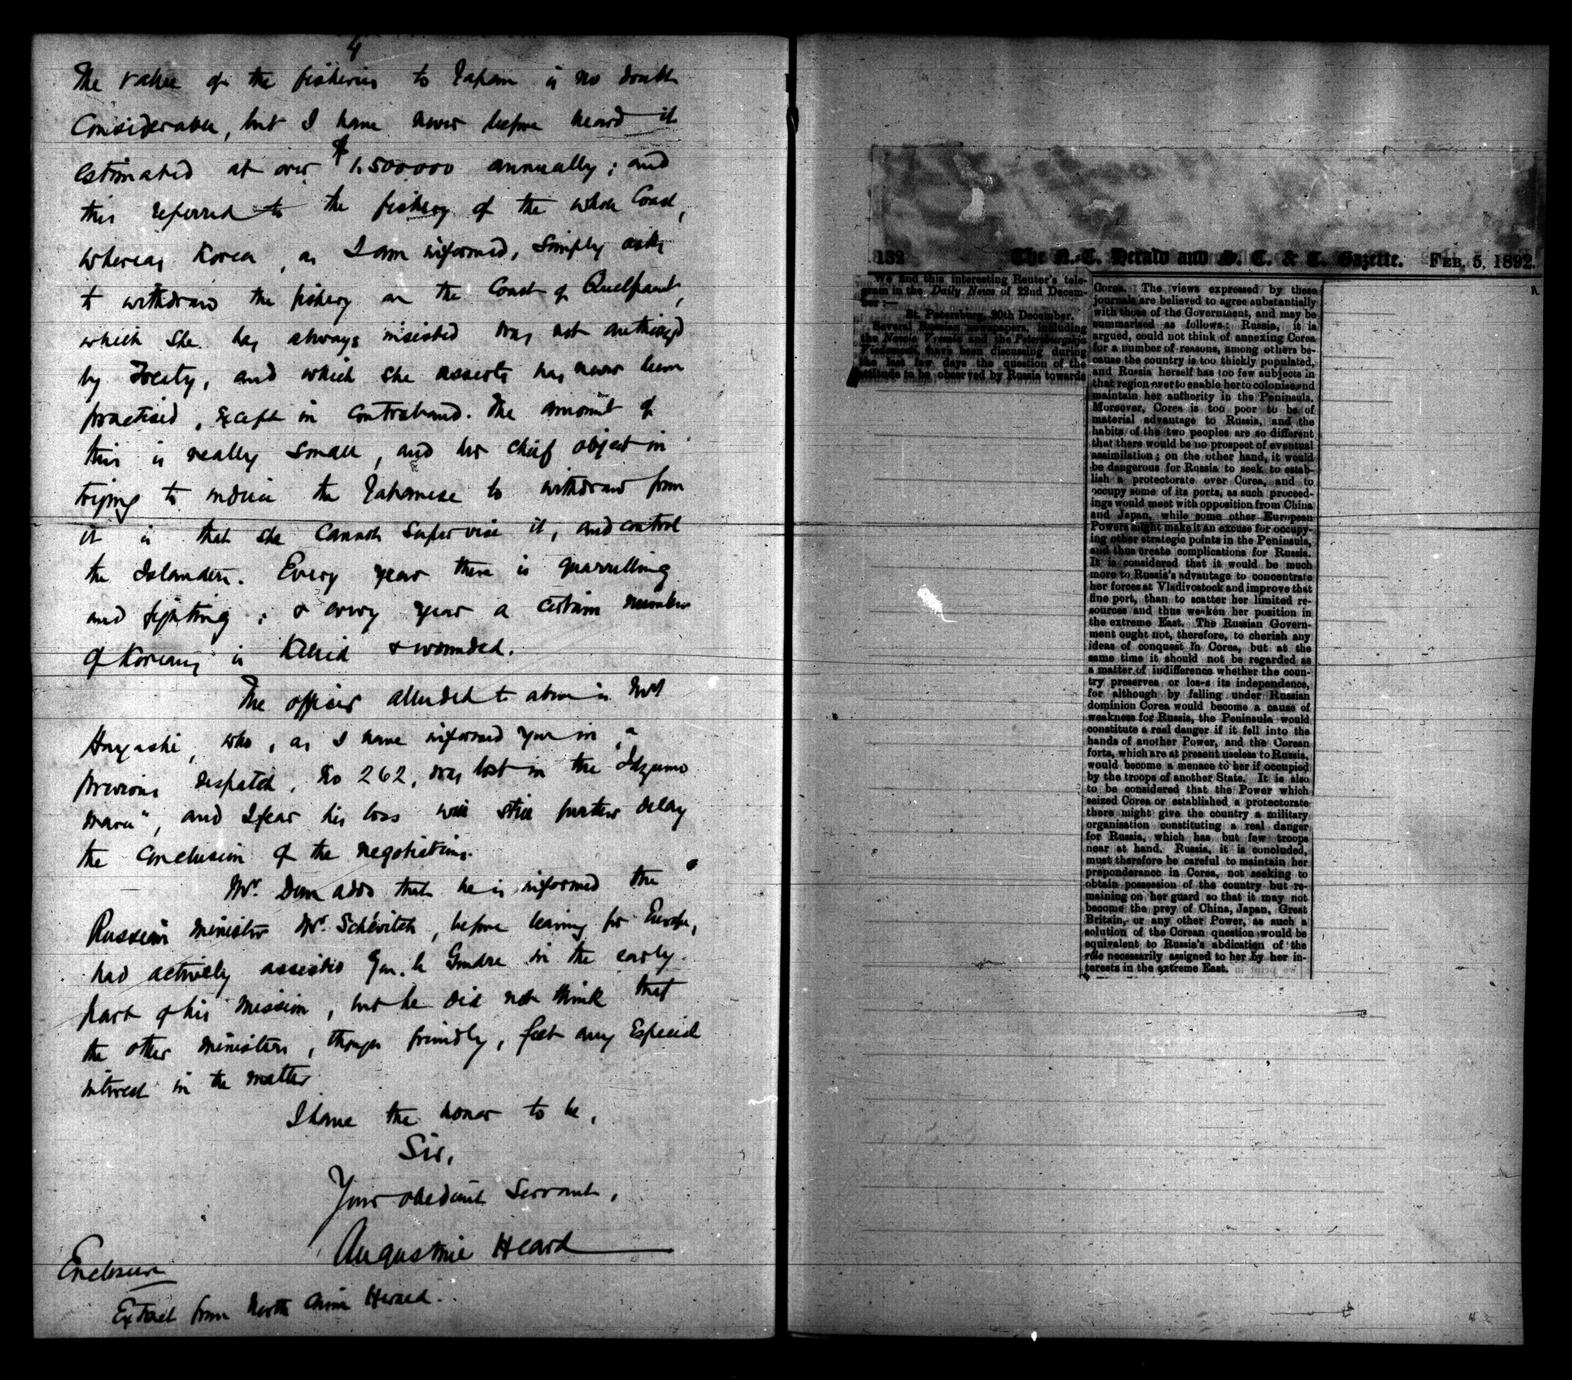 4
The value of the fisheries to Japan is no doubt
considerable, but I have never before heard it
estimated at over $1,500000 annually; and
this referred to the fishery of the whole Coast,
whereas Korea, as I am informed, simply asks
to withdraw the fishery on the Coast of Quelpaert,
which she has always insisted was not authized
by Treaty, and which she asserts has never been
practised, except in contraband. The amount of
this is really small, and her chief object in
trying to induce the Japanese to withdraw from
it is that she cannot supervise it, and control
the Islanders. Every year there is quarrelling
and fighting; & every year a certain number
of Koreans is killed & wounded.
The officer alluded to above is Mr
Hayashi, who, as I have informed you in a
previous despatch, No 262, was lost in the "Idzumo
Maru", and I fear his loss will still further delay
the conclusion of the negotiations.
Mr. Dun adds that he is informed the
Russian Minister Mr. Schévitch, before leaving for Europe,
had actively assisted Gen. le Gendre in the early
part of his mission, but he did not think that
the other Ministers, though friendly, felt any especial
interest in the matter
I have the honor to be,
Sir,
Your obedient Servant,
Augustine Heard
Enclosure
Extract from North China Herald.
132 The N.-C. Herald and S. C. & C. Gazette. FEB. 5, 1892.
We find this interesting Reuter's tele-
gram in the Daily News of 22nd Decem-
ber :—
St. Petersburg, 20th December.
Several Russian newspapers, including
the Novoe Vremia and the Petersburgskija
Viedomosti, have been discussing during
the last few days the question of the
attitude to be observed by Russia towards
Corea. The views expressed by these
journals are believed to agree substantially
with those of the Government, and may be
summarised as follows: Russia, it is
argued, could not think of annexing Corea
for a number of reasons, among others be-
cause the country is too thickly populated,
and Russia herself has too few subjects in
that region over to enable her to colonise and
maintain her authority in the Peninsula.
Moreover, Corea is too poor to be of
material advantage to Russia, and the
habits of the two peoples are so different
that there would be no prospect of eventual
assimilation; on the other hand, it would
be dangerous for Russia to seek to estab-
lish a protectorate over Corea, and to
occupy some of its ports, as such proceed-
ings would meet with opposition from China
and Japan, while some other European
Powers might make it an excuse for occupy-
ing other strategic points in the Peninsula,
and thus create complications for Russia.
It is considered that it would be much
more to Russia's advantage to concentrate
her forces at Vladivostock and improve that
fine port, than to scatter her limited re-
sources and thus weaken her position in
the extreme East. The Russian Govern-
ment ought not, therefore, to cherish any
ideas of conquest in Corea, but at the
same time it should not be regarded as
a matter of indifference whether the coun-
try preserves or loses its independence,
for although by falling under Russian
dominion Corea would become a cause of
weakness for Russia, the Peninsula would
constitute a real danger if it fell into the
hands of another Power, and the Corean
forts, which are at present useless to Russia,
would become a menace to her if occupied
by the troops of another State. It is also
to be considered that the Power which
seized Corea or established a protectorate
there might give the country a military
organisation constituting a real danger
for Russia, which has but few troops
near at hand. Russia, it is concluded,
must therefore be careful to maintain her
preponderance in Corea, not seeking to
obtain possession of the country but re-
maining on her guard so that it may not
become the prey of China, Japan, Great
Britain, or any other Power, as such a
solution of the Corean question would be
equivalent to Russia's abdication of the
rôle necessarily assigned to her by her in-
terests in the extreme East.